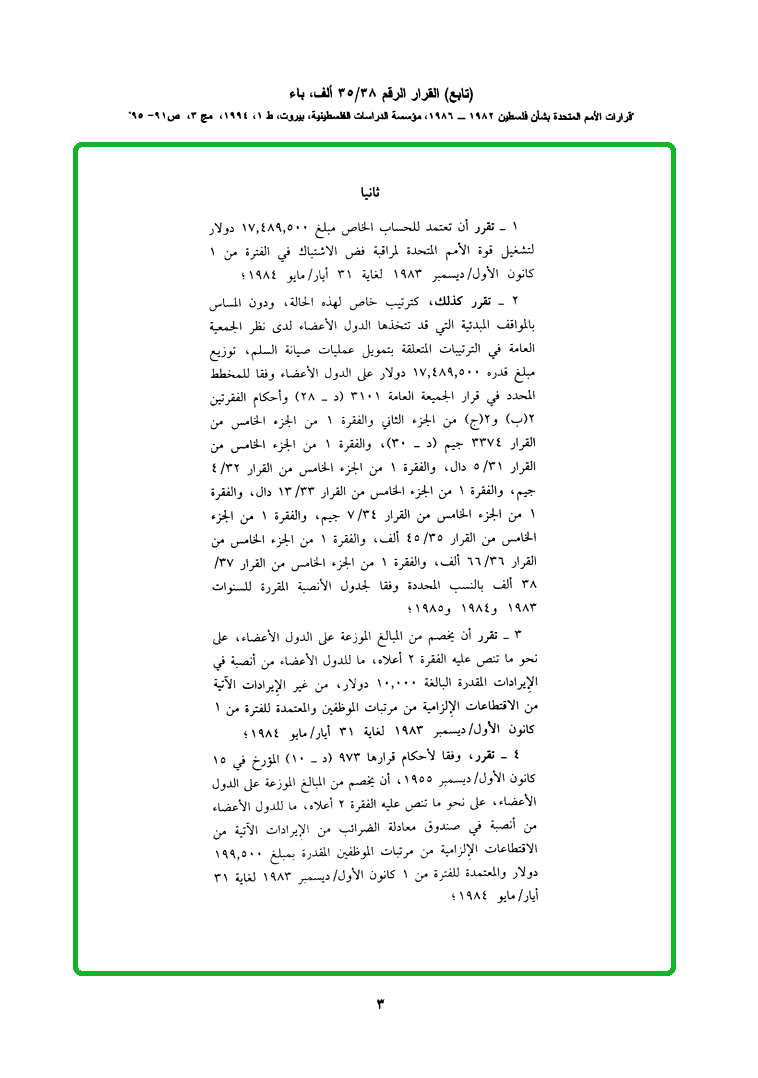 (تابع) القرار الرقم ٣٥/٣٨ ألف، باء
"قرارات الأمم المتحدة بشأن فلسطين ١٩٨٢ ــ ١٩٨٦، مؤسسة الدراسات الفلسطينية، بيروت، ط ١، ١٩٩٤، مج ٣، ص٩١- ٩٥"
ثانيا
١ ــ تقرر أن تعتمد للحساب الخاص مبلغ ١٧,٤٨٩,٥٠٠ دولار
لتشغيل قوة الأمم المتحدة لمراقبة فض الاشتباك في الفترة من ١
كانون الأول/ديسمبر ١٩٨٣ لغاية ٣١ أيار/مايو ١٩٨٤؛
٢ ــ تقرر كذلك، كترتيب خاص لهذه الحالة، ودون المساس
بالمواقف المبدئية التي قد تتخذها الدول الأعضاء لدى نظر الجمعية
العامة في الترتيبات المتعلقة بتمويل عمليات صيانة السلم، توزيع
مبلغ قدره ١٧,٤٨٩,٥٠٠ دولار على الدول الأعضاء وفقا للمخطط
المحدد في قرار الجميعة العامة ٣١٠١ (د ــ ٢٨) وأحكام الفقرتين
٢(ب) و٢(ج) من الجزء الثاني والفقرة ١ من الجزء الخامس من
القرار ٣٣٧٤ جيم (د ــ ٣٠)، والفقرة ١ من الجزء الخامس من
القرار ٥/٣١ دال، والفقرة ١ من الجزء الخامس من القرار ٤/٣٢
جيم، والفقرة ١ من الجزء الخامس من القرار ١٣/٣٣ دال، والفقرة
١ من الجزء الخامس من القرار ٧/٣٤ جيم، والفقرة ١ من الجزء
الخامس من القرار ٤٥/٣٥ ألف، والفقرة ١ من الجزء الخامس من
القرار ٦٦/٣٦ ألف، والفقرة ١ من الجزء الخامس من القرار ٣٧/
٣٨ ألف بالنسب المحددة وفقا لجدول الأنصبة المقررة للسنوات
١٩٨٣ و١٩٨٤ و١٩٨٥؛
٣ ــ تقرر أن يخصم من المبالغ الموزعة على الدول الأعضاء، على
نحو ما تنص عليه الفقرة ٢ أعلاه، ما للدول الأعضاء من أنصبة في
الإيرادات المقدرة البالغة ١٠,٠٠٠ دولار، من غير الإيرادات الآتية
من الاقتطاعات الإلزامية من مرتبات الموظفين والمعتمدة للفترة من ١
كانون الأول/ديسمبر ١٩٨٣ لغاية ٣١ أيار/مايو ١٩٨٤؛
٤ ــ تقرر، وفقا لأحكام قرارها ٩٧٣ (د ــ ١٠) المؤرخ في ١٥
كانون الأول/ديسمبر ١٩٥٥، أن يخصم من المبالغ الموزعة على الدول
الأعضاء، على نحو ما تنص عليه الفقرة ٢ أعلاه، ما للدول الأعضاء
من أنصبة في صندوق معادلة الضرائب من الإيرادات الآتية من
الاقتطاعات الإلزامية من مرتبات الموظفين المقدرة بمبلغ ١٩٩,٥٠٠
دولار والمعتمدة للفترة من ١ كانون الأول/ديسمبر ١٩٨٣ لغاية ٣١
أيار/مايو ١٩٨٤؛
٣